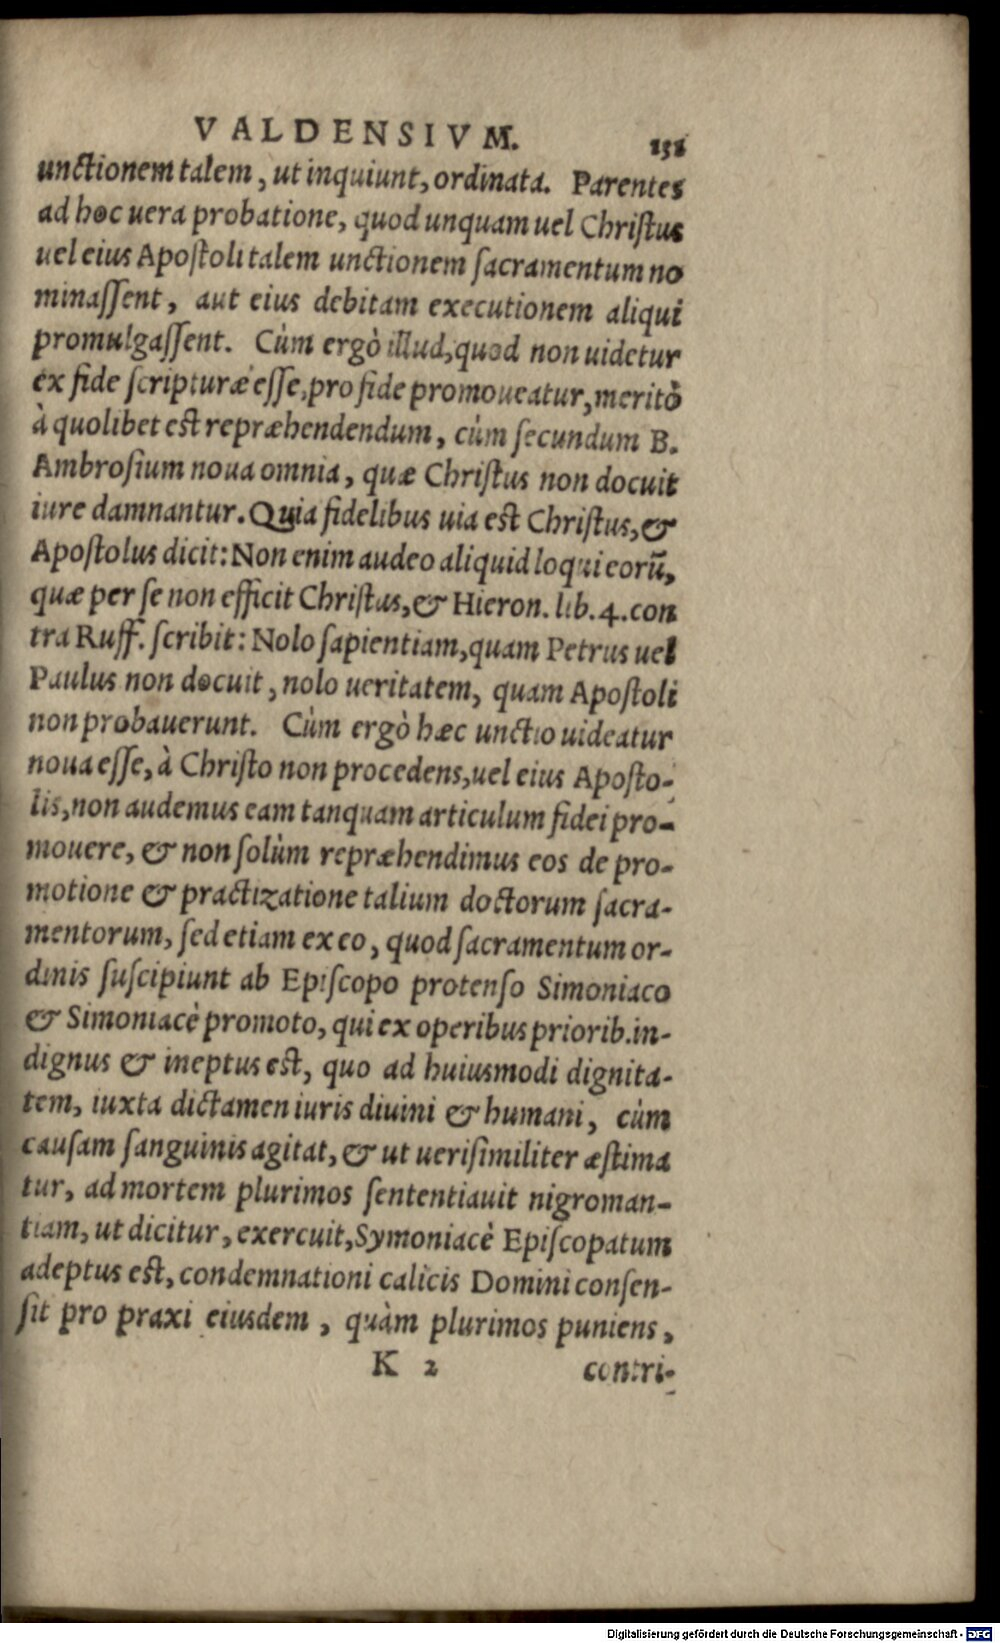 VALDENSIVM. 158
unctionem talem, ut inquiunt, ordinata. Parentes
ad hoc uera probatione, quod unquam uel Christus
uel eius Apostoli talem unctionem sacramentum no
minassent, aut eius debitam executionem aliqui
promulgassent. Cùm ergò illud, quod non uidetur
ex fide scripturæ esse, pro fide promoueatur, meritò
à quolibet est repræhendendum, cùm secundum B.
Ambrosium noua omnia, quæ Christus non docuit
iure damnantur. Quia fidelibus uia est Christus, &
Apostolus dicit: Non enim audeo aliquid loqui eorũ,
quæ per se non efficit Christus, & Hieron. lib. 4. con
tra Ruff. scribit: Nolo sapientiam, quam Petrus uel
Paulus non docuit, nolo ueritatem, quam Apostoli
non probauerunt. Cùm ergò hæc unctio uideatur
noua esse, à Christo non procedens, uel eius Aposto-
lis, non audemus eam tanquam articulum fidei pro-
mouere, & non solùm repræhendimus eos de pro-
motione & practizatione talium doctorum sacra-
mentorum, sed etiam ex eo, quod sacramentum or-
dinis suscipiunt ab Episcopo protenso Simoniaco
& Simoniacè promoto, qui ex operibus priorib. in-
dignus & ineptus est, quo ad huiusmodi dignita-
tem, iuxta dictamen iuris diuini & humani, cùm
causam sanguinis agitat, & ut uerisimiliter æstima
tur, ad mortem plurimos sententiauit nigroman-
tiam, ut dicitur, exercuit, Symoniacè Episcopatum
adeptus est, condemnationi calicis Domini consen-
sit pro praxi eiusdem, quàm plurimos puniens,
K 2 contri-
Digitalisierung gefördert durch die Deutsche Forschungsgemeinschaft - DFG